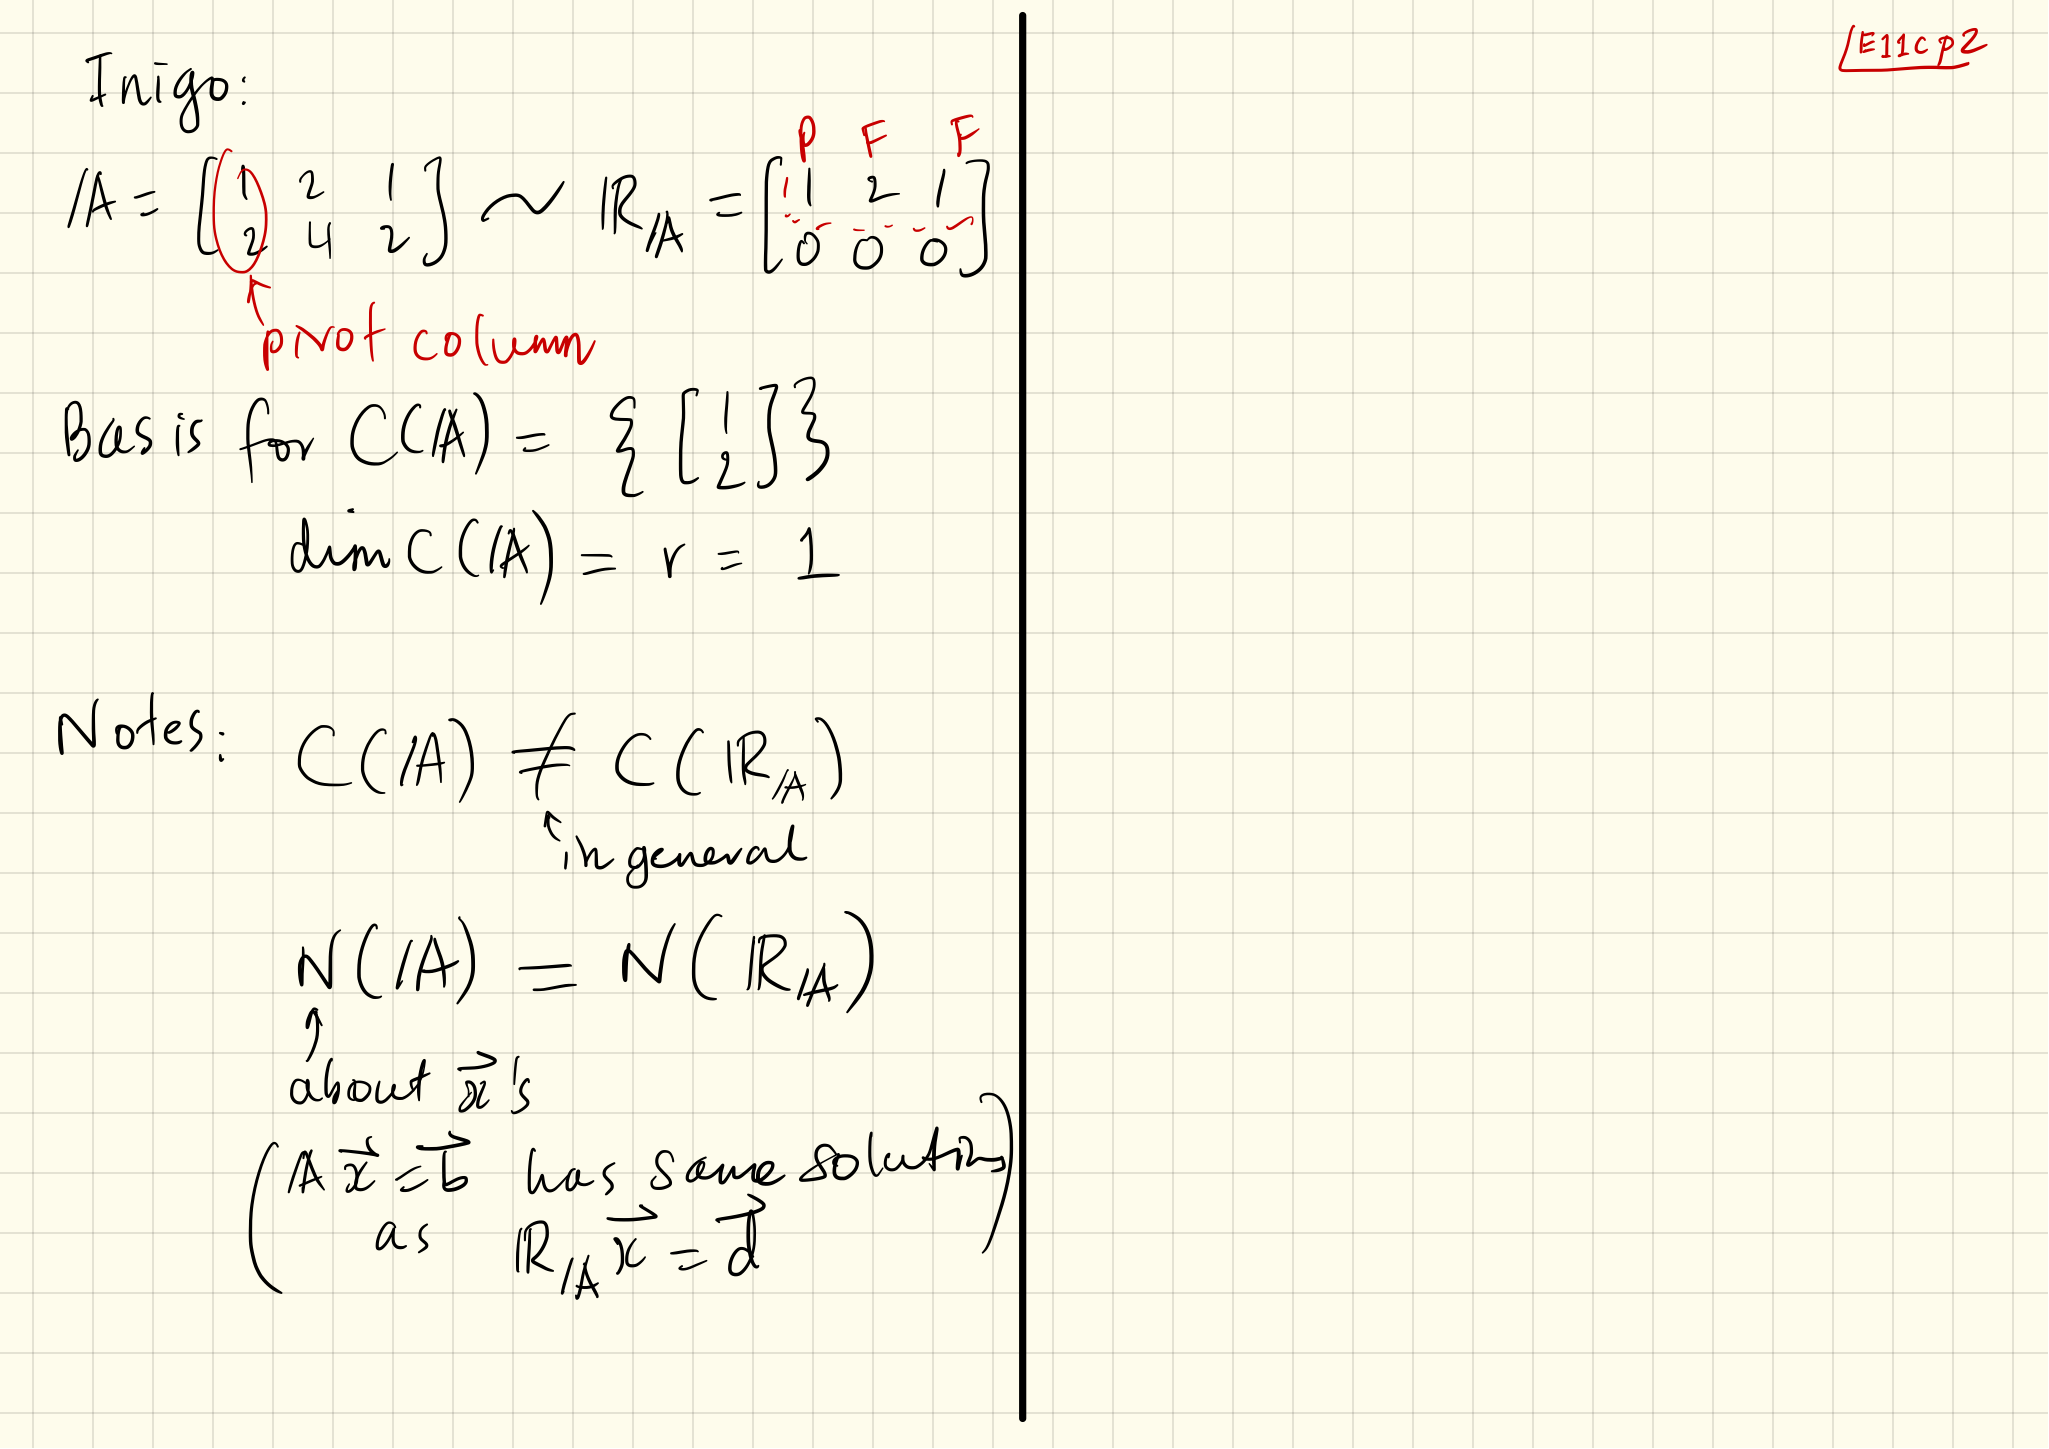 E11cp2
Inigo:
P F F
𝔸 = [1 2 1; 2 4 2] ~ ℝ_𝔸 = [1 2 1; 0 0 0]
pivot column
Basis for C(𝔸) = { [1; 2] }
dim C(𝔸) = r = 1
Notes: C(𝔸) ≠ C(ℝ_𝔸)
in general
N(𝔸) = N(ℝ_𝔸)
about x⃗'s
(𝔸x⃗ = b⃗ has same solutions
as ℝ_𝔸 x⃗ = d⃗)